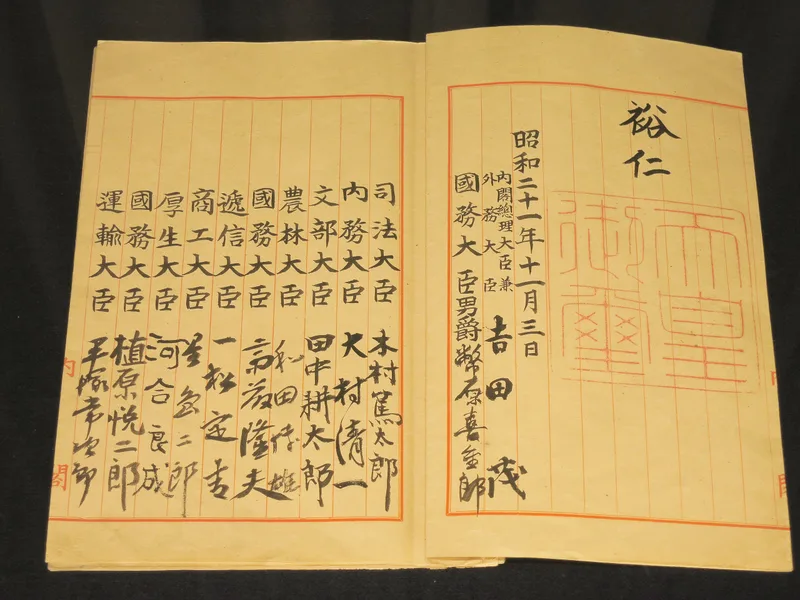 裕仁
天皇
御璽
昭和二十一年十一月三日
内閣総理大臣兼
外務大臣 吉田茂
國務大臣 男爵 幣原喜重郎
司法大臣 木村篤太郎
内務大臣 大村清一
文部大臣 田中耕太郎
農林大臣 和田博雄
國務大臣 斎藤隆夫
逓信大臣 一松定吉
商工大臣 星島二郎
厚生大臣 河合良成
國務大臣 植原悦二郎
運輸大臣 平塚常次郎
内閣